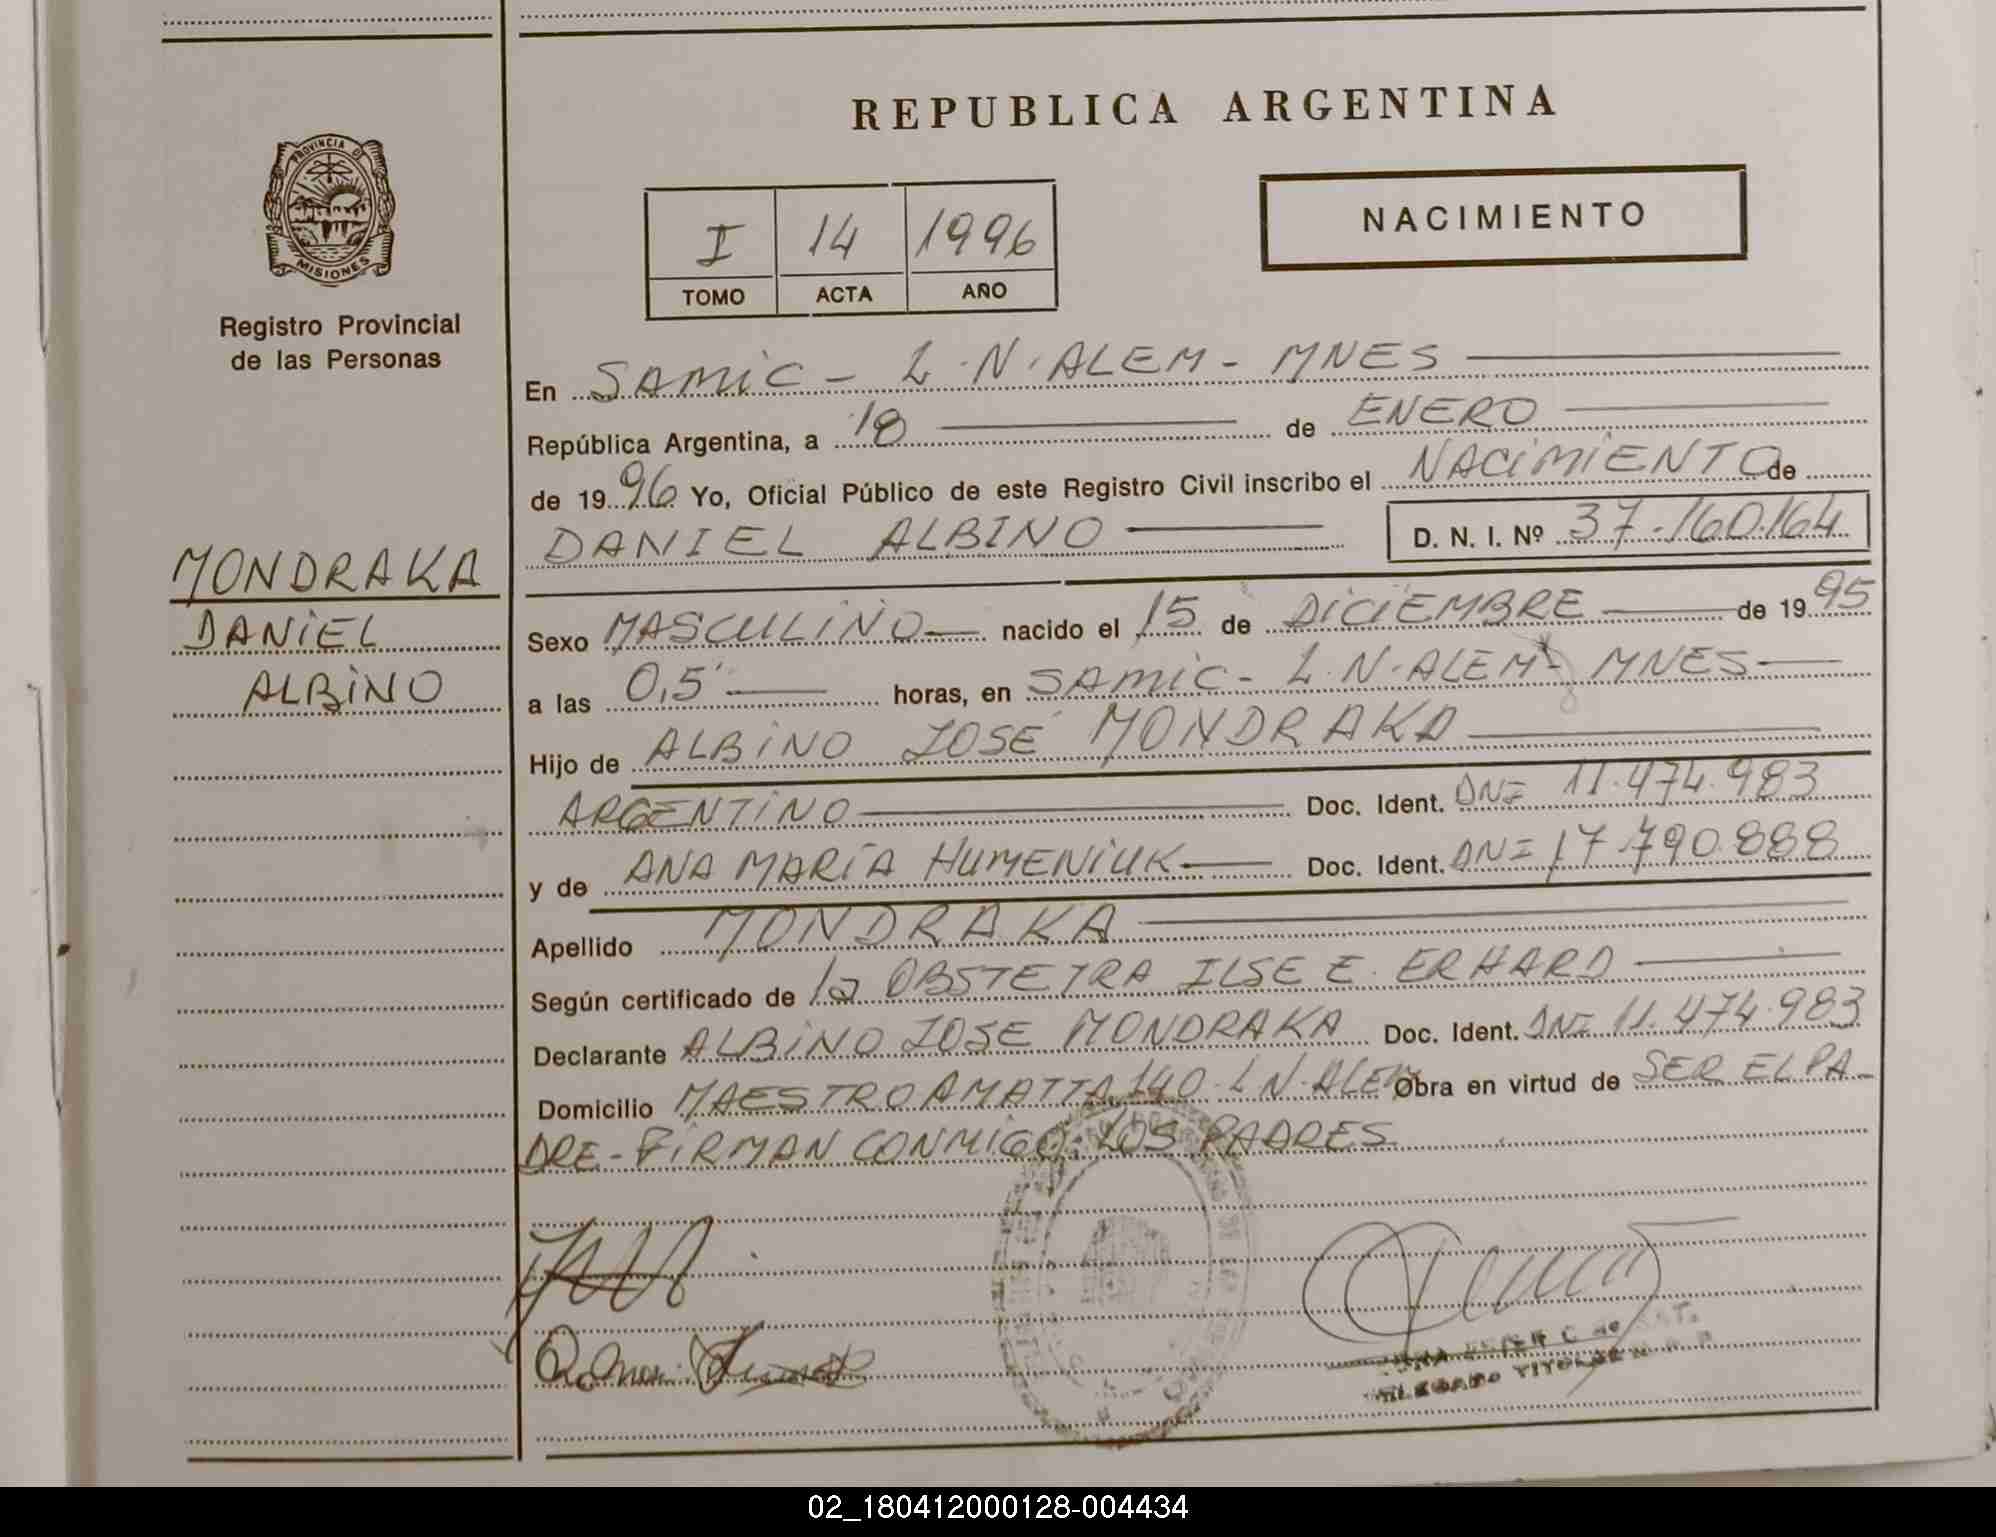 REPUBLICA ARGENTINA
PROVINCIA DE
MISIONES
Registro Provincial
de las Personas
I 14 1996
TOMO ACTA AÑO
NACIMIENTO
MONDRAKA
DANIEL
ALBINO
En SAMIC - L.N.ALEM - MNES
República Argentina, a 18 de ENERO
de 1996 Yo, Oficial Público de este Registro Civil inscribo el NACIMIENTO de
DANIEL ALBINO D. N. I. Nº 37.160.164
Sexo MASCULINO nacido el 15 de DICIEMBRE de 1995
a las 0,5 horas, en SAMIC - L.N.ALEM - MNES
Hijo de ALBINO JOSÉ MONDRAKA
ARGENTINO Doc. Ident. DNI 11.474.983
y de ANA MARÍA HUMENIUK Doc. Ident. DNI 17.790.888
Apellido MONDRAKA
Según certificado de la OBSTETRA ILSE E. ERHARD
Declarante ALBINO JOSE MONDRAKA Doc. Ident. DNI 11.474.983
Domicilio MAESTRO AMATTA 140. L N.ALEM Obra en virtud de SER EL PA-
DRE - FIRMAN CONMIGO: LOS PADRES
02_180412000128-004434